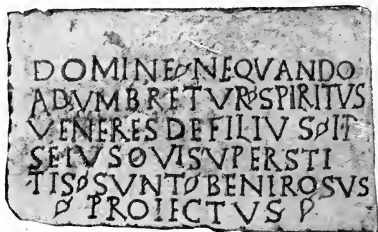 DOMINE NEQVANDO
ADVMBRETVR SPIRITVS
VENERES DEFILIVS IP
SEIVS QVI SVPERSTI
TIS SVNT BENIROSVS
PROIECTVS